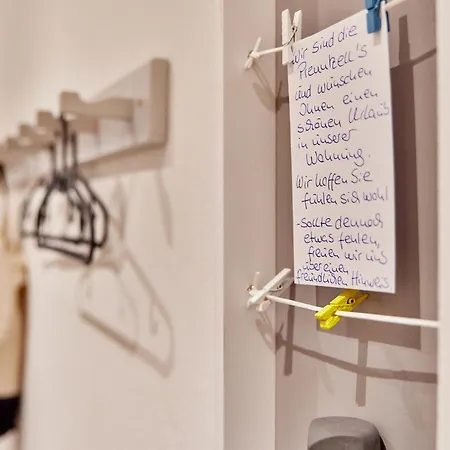 Wir sind die
Prenntzell's
und wünschen
Ihnen einen
schönen Urlaub
in unserer
Wohnung.
Wir hoffen Sie
fühlen sich wohl
- Sollte dennoch
etwas fehlen,
freuen wir uns
über einen
freundlichen Hinweis